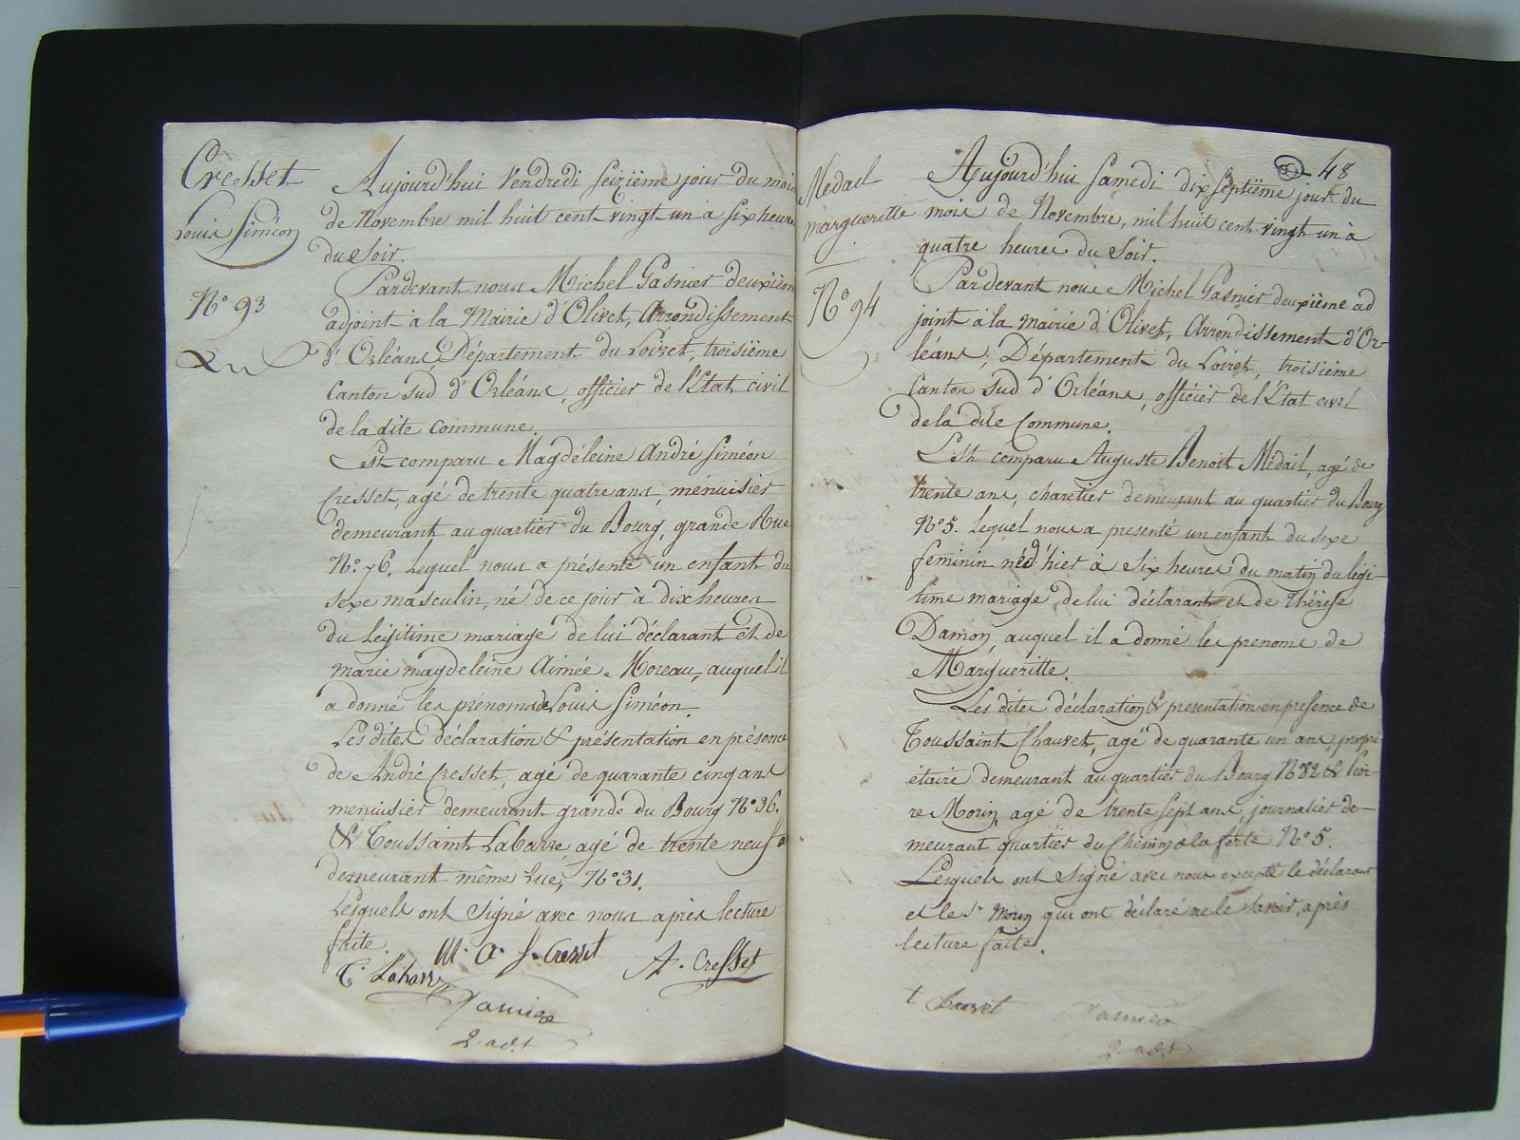 Cresset
Louis Siméon
N° 93
Aujourd'hui Vendredi Seizième jour du mois
de Novembre mil huit cent vingt un à Six heures
du Soir.
Pardevant nous Michel Gasnier deuxième
adjoint à la Mairie d'Olivet, Arrondissement
d'Orléans, Département du Loiret, troisième
Canton Sud d'Orléans, officier de l'Etat civil
de la dite Commune.
Est comparu Magdéleine André Siméon
Cresset, agé de trente quatre ans, ménuisier
demeurant au quartier du Bourg, grande Rue
N° 76. Lequel nous a présenté un enfant du
Sexe masculin, né de ce jour à dix heures
du Légitime mariage de lui déclarant et de
marie magdeleine Aimée Moreau, auquel il
a donné les prénoms de Louis Siméon.
Les dites déclaration & présentation en présence
de André Cresset, agé de quarante cinq ans
menuisier demeurant grande du Bourg N° 36.
& Toussaint Labarre agé de trente neuf a
demeurant même Rue, N° 31.
Lesquels ont Signé avec nous après lecture
faite.
M. A. S. Cresset
T. Labarre
A. Cresset
2. adt
48
Medail
marguerette
N° 94
Aujourd'hui Samedi dix Septième jour du
mois de Novembre, mil huit cent vingt un à
quatre heures du Soir.
Pardevant nous Michel Gasnier deuxième ad
joint à la mairie d'Olivet, Arrondissement d'Or-
léans, Département du Loiret, troisieme
Canton Sud d'Orléans, officier de l'Etat civil
de la dite Commune.
Est comparu Auguste Benoit Médail, agé de
trente ans, charetier demeurant au quartier du Bourg
N° 5. Lequel nous a presenté un enfant du sexe
feminin né d'hier à Six heures du matin du légi-
time mariage de lui déclarant et de Thérèse
Damon, auquel il a donné les prenoms de
Margueritte.
Les dites déclaration & presentation en presence de
Toussaint Chauvet, agé de quarante un ans, propri
étaire demeurant au quartier du Bourg N° 32 & Pier-
re Morin agé de trente Sept ans, journalier de-
meurant quartier du Chemin de la ferté N° 5.
Lesquels ont Signé avec nous excepté le déclarant
et le Sr. Morin qui ont déclaré ne le savoir, après
lecture faite.
t Chauvet
2. adt